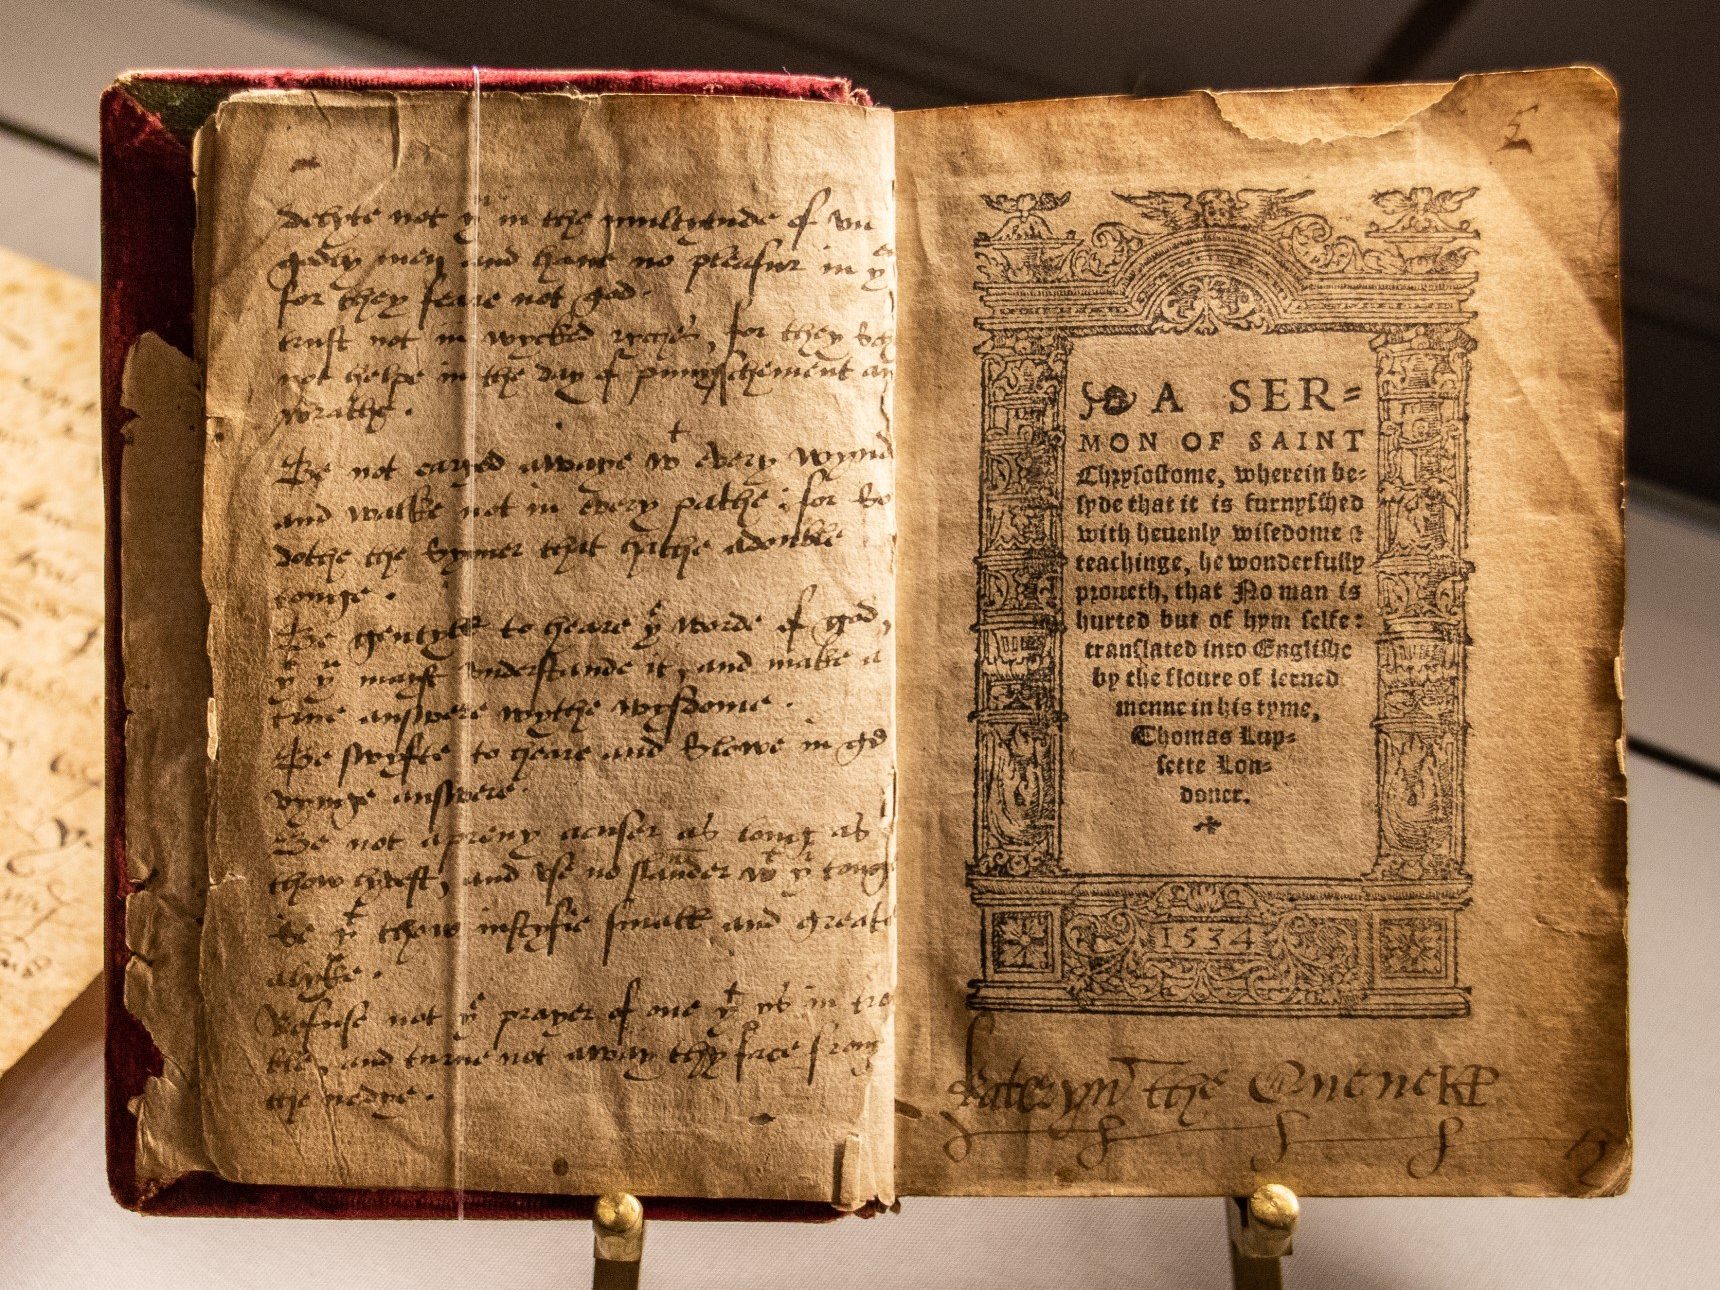 delyte not yu in the multytude of vn
godly men and haue no pleasur in y
for they feare not god.
trust not in wycked ryches, for they
not helpe in the day of punyschement an
wrathe.
Be not caryed awaye wt euery wynd
and walke not in euery pathe: for so
dothe the synner that hathe a double
tonge.
Be gentyll to heare ye worde of god,
yt yu mayst vnderstande it, and make a
true answere wythe wysdome.
Be swyfte to heare and slowe in ge
vynge answere.
Be not a preuy acuser as long as
thow lyuest, and vse no slaunder wt yr tonge
Se yt thow iustyfie small and greate
alyke.
Refuse not ye prayer of one yt ys in tro
ble, and turne not away thy face from
the nedye.
5
A SER=
MON OF SAINT
Chrysostome, wherein be=
syde that it is furnysshed
with heuenly wisedome &
teachinge, he wonderfully
proueth, that No man is
hurted but of hym selfe:
translated into Englishe
by the floure of lerned
menne in his tyme,
Thomas Lup=
sette Lon=
doner.
1534
Kateryn the Quene KP